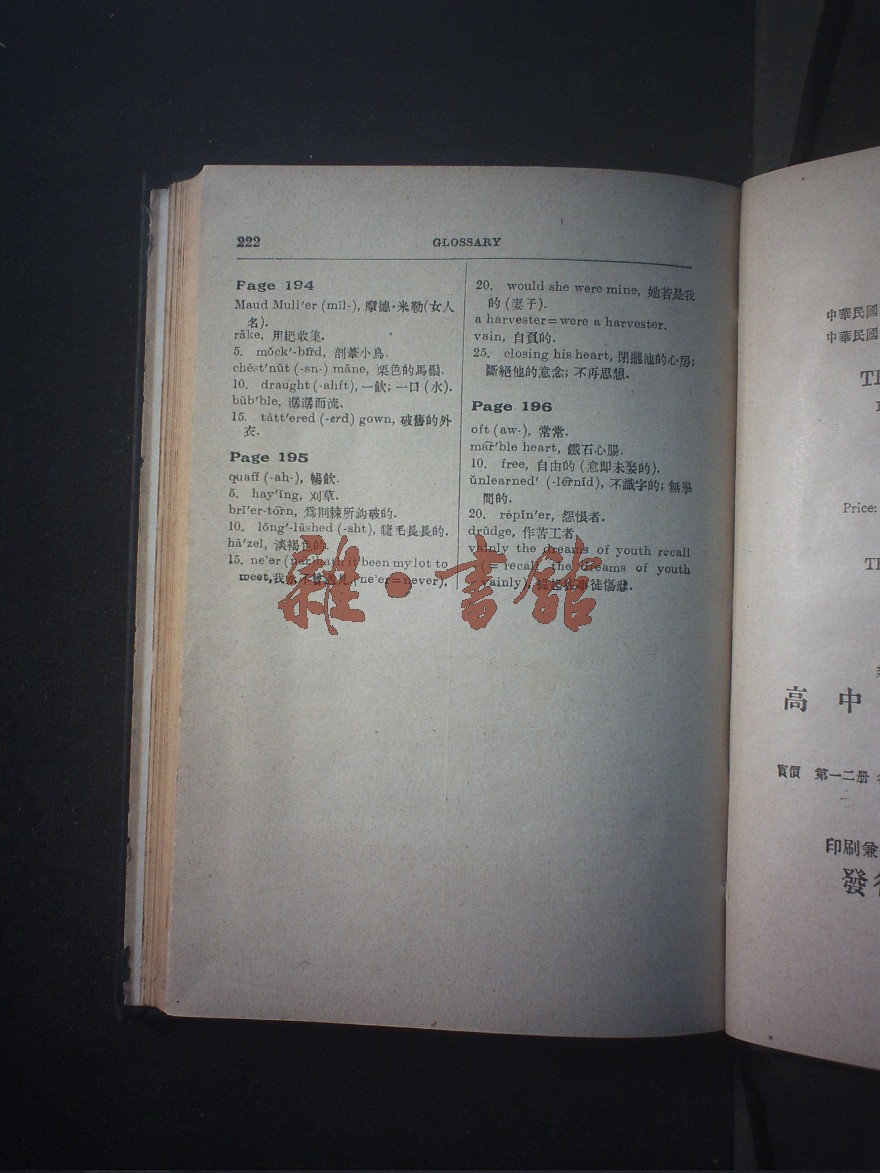 222
GLOSSARY
Page 194
Maud Mull′er (mĭl-), 摩德·米勒(女人
名).
rāke, 用耙收集.
5. mŏck′-bĩrd, 剖葦小鳥.
chĕst′nŭt (-sn-) māne, 栗色的馬鬃.
10. draught (-ahft), 一飲; 一口 (水).
bŭb′ble, 潺潺而流.
15. tătt′ered (-erd) gown, 破舊的外
衣.
Page 195
quaff (-ah-), 暢飲.
5. hay′ĭng, 刈草.
brī′er-tōrn, 爲荆棘所鈎破的.
10. lŏng′-lăshed (-sht), 睫毛長長的.
hā′zel, 淡褐色的.
15. ne'er (nar) hath it been my lot to
meet, 我 遇見 (ne'er=never).
20. would she were mine, 她若是我
的 (妻子).
a harvester=were a harvester.
vain, 自負的.
25. closing his heart, 閉攏他的心房;
斷絕他的意念; 不再思想.
Page 196
oft (aw-), 常常.
mar′ble heart, 鐵石心腸.
10. free, 自由的 (意即未娶的).
ŭnlearned′ (-lẽrnĭd), 不識字的; 無學
問的.
20. rēpīn′er, 怨恨者.
drŭdge, 作苦工者.
vainly the dreams of youth recall
(= recall the dreams of youth
vainly), 徒傷悲.
雜·書館
中華民國
中華民國
Price:
高中
實價 第一二册
印刷兼
發